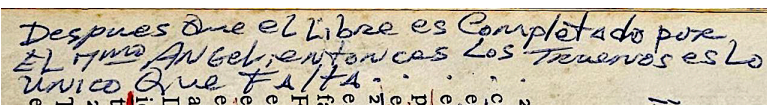 Despues Que el Libro es Completado por
EL 7mo ANGEL, entonces Los Truenos es Lo
UNICO QUE FALTA. . . . .